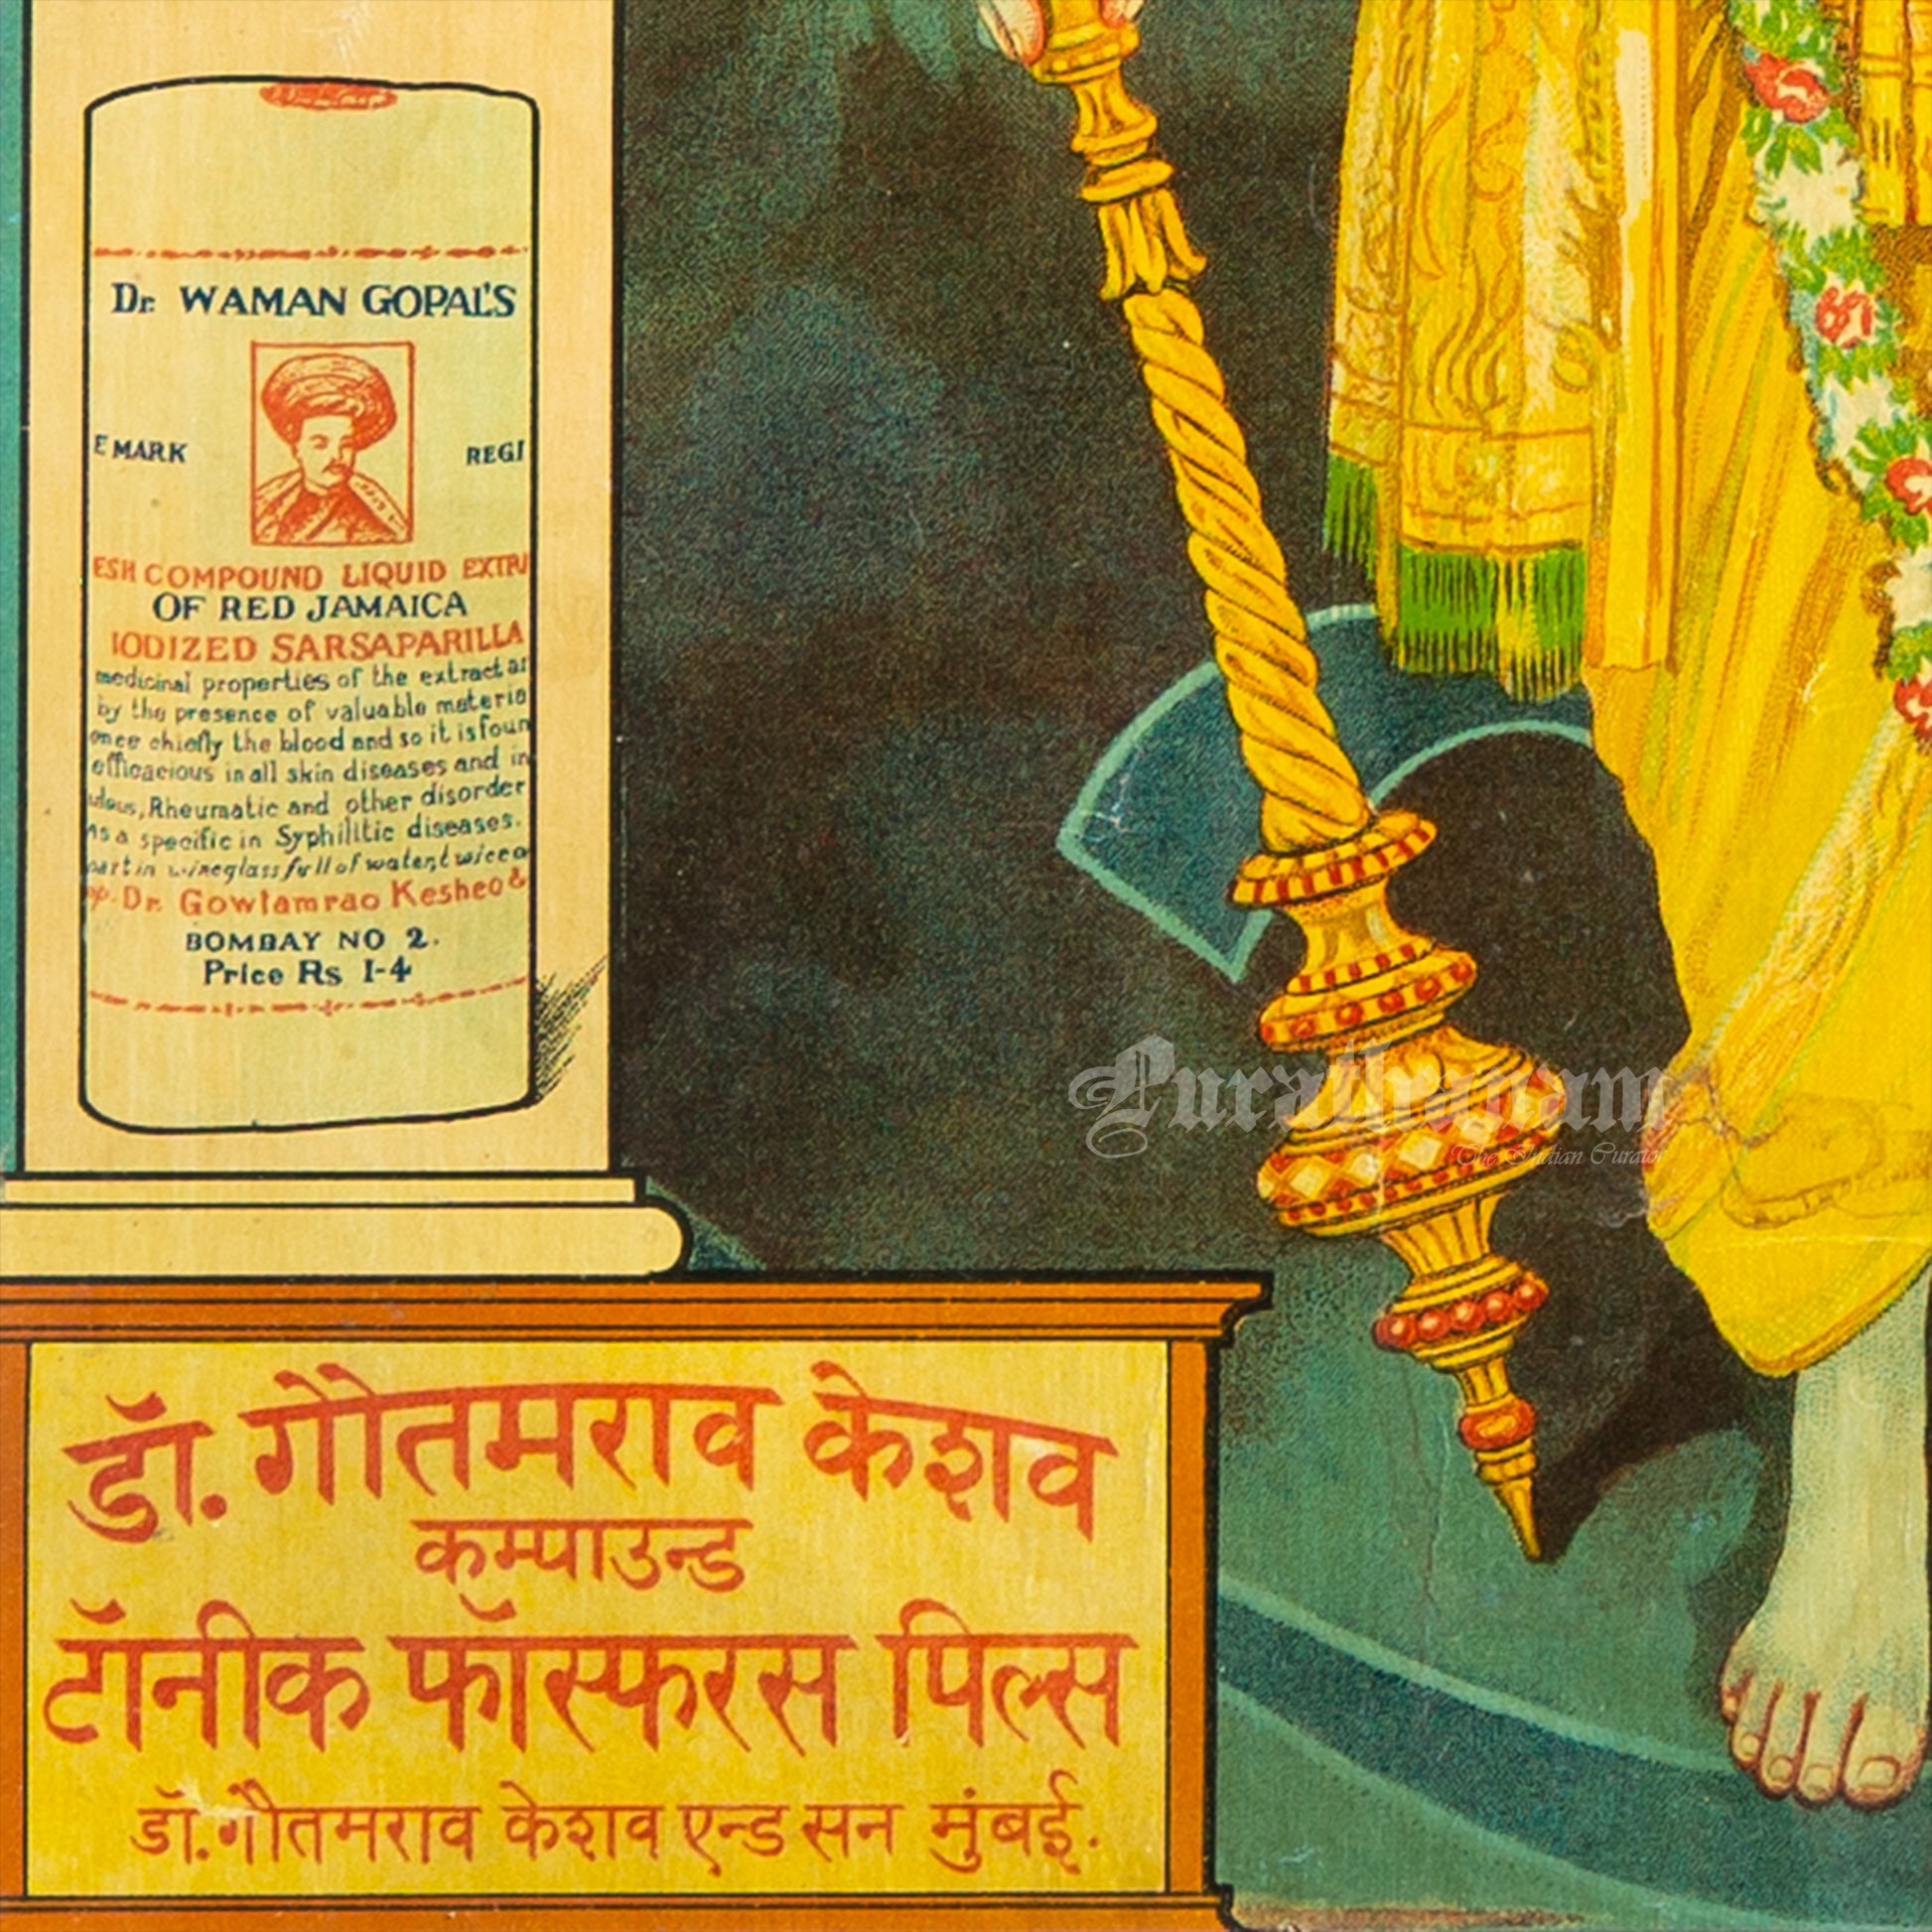 Dr. WAMAN GOPAL'S
E MARK REGI
ESH COMPOUND LIQUID EXTR
OF RED JAMAICA
IODIZED SARSAPARILLA
medicinal properties of the extract an
by the presence of valuable materia
once chiefly the blood and so it is foun
efficacious in all skin diseases and in
ulous, Rheumatic and other disorder
As a specific in Syphilitic diseases.
part in wineglass full of water, twice a
op. Dr. Gowtamrao Kesheo &
BOMBAY NO 2.
Price Rs 1-4
Purathanam
The Indian Curator
डॉ. गौतमराव केशव
कम्पाउन्ड
टॉनीक फॉस्फरस पिल्स
डॉ. गौतमराव केशव एन्ड सन मुंबई.